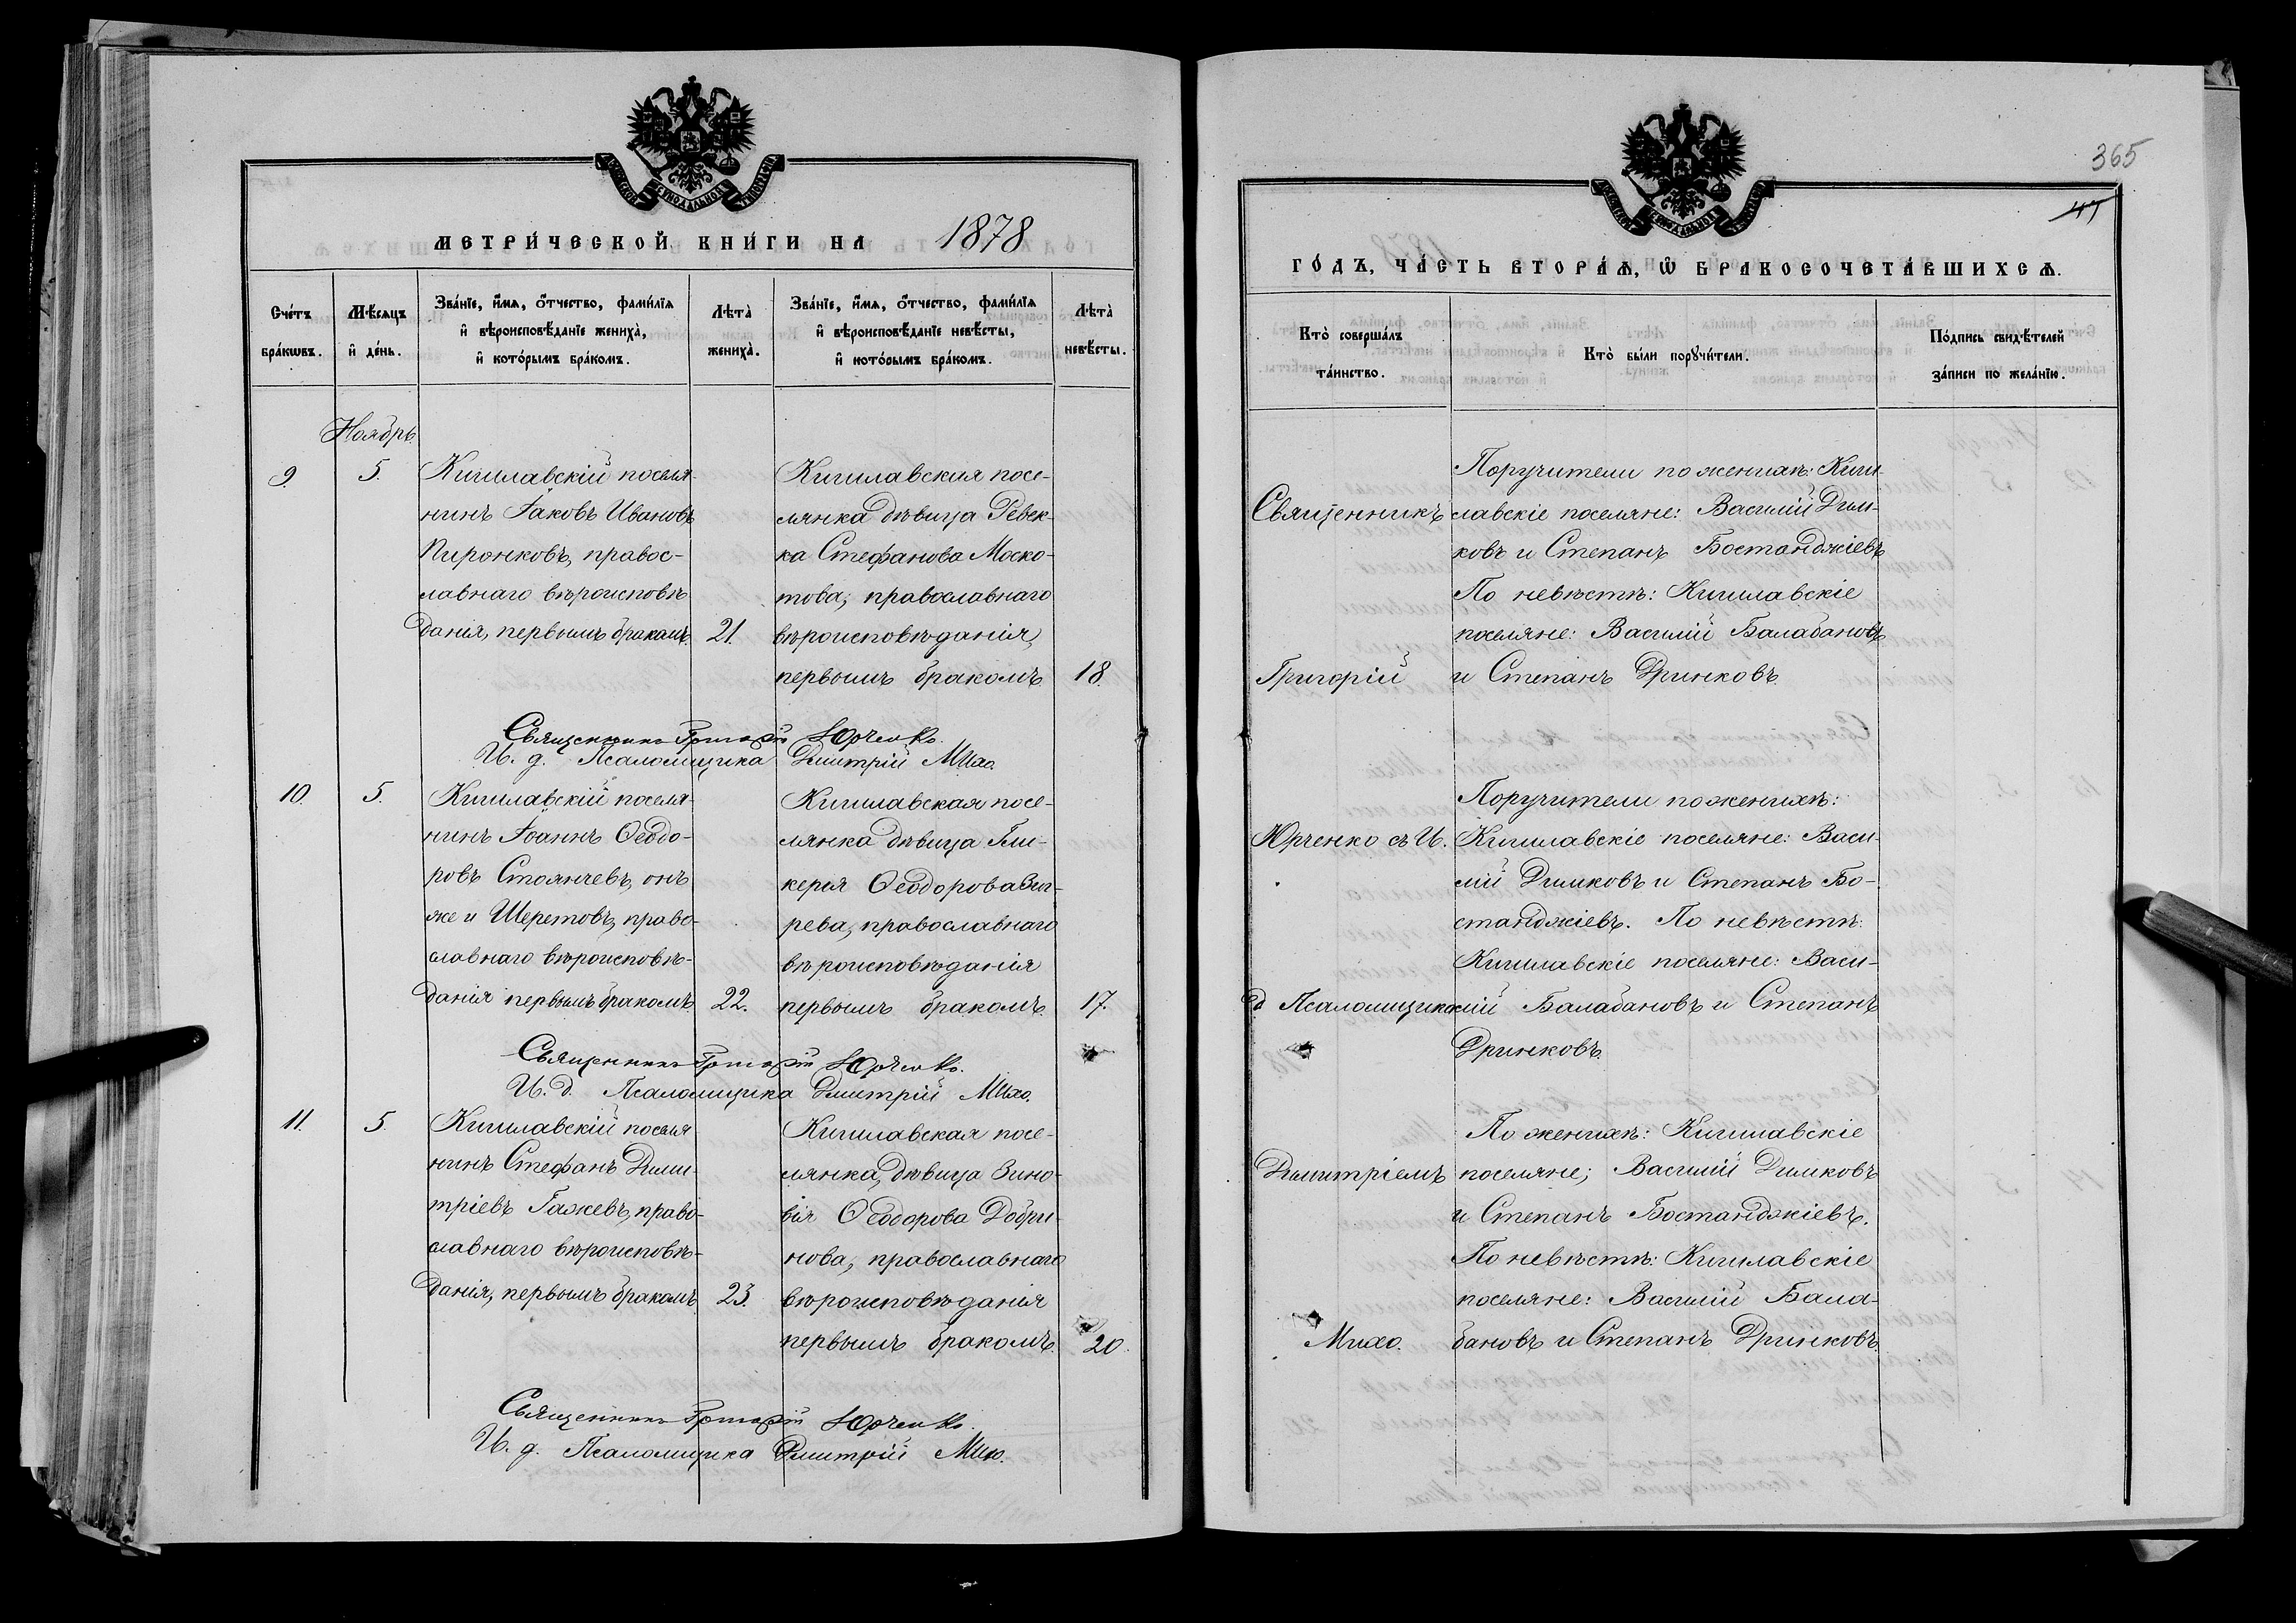 МЕТРИ́ЧЕСКОЙ КНИ́ГИ НА 1878
Сче́тъ бра́кѡвъ.
Мѣ́сѧцъ и҆ де́нь.
Зва́нїе, и҆́мѧ, ѻ҆́тчество, фами́лїѧ
и҆ вѣроисповѣ́данїе жениха̀,
и҆ кото́рымъ бра́комъ.
Лѣта̀ жениха̀.
Зва́нїе, и҆́мѧ, ѻ҆́тчество, фами́лїѧ
и҆ вѣроисповѣ́данїе невѣ́сты,
и҆ кото́рымъ бра́комъ.
Лѣта̀ невѣ́сты.
Ноябрь.
9. 5.
Кигилавскій поселя-
нинъ Іаковъ Ивановъ
Пиронковъ, правос-
лавнаго вѣроисповѣ-
данія, первымъ бракомъ. 21.
Кигилавская посе-
лянка дѣвица Ревек-
ка Стефанова Моско-
това, православнаго
вѣроисповѣданія,
первымъ бракомъ. 18.
Священникъ Григорій Юрченко.
И. д. Псаломщика Дмитрій Михо.
10. 5.
Кигилавскій поселя-
нинъ Іоаннъ Ѳеодо-
ровъ Стоянчевъ, онъ
же и Шеретовъ, право-
славнаго вѣроисповѣ-
данія первымъ бракомъ. 22.
Кигилавская посе-
лянка дѣвица Гли-
керія Ѳеодорова
рева, православнаго
вѣроисповѣданія
первымъ бракомъ. 17.
Священникъ Григорій Юрченко.
И. д. Псаломщика Дмитрій Михо.
11. 5.
Кигилавскій поселя
нинъ Стефанъ Дими-
тріевъ Гажевъ, право-
славнаго вѣроисповѣ-
данія, первымъ бракомъ 23.
Кигилавская посе-
лянка, дѣвица Зино-
вія Ѳеодорова Добри-
нова, православнаго
вѣроисповѣданія
первымъ бракомъ. 20.
Священникъ Григорій Юрченко.
И. д. Псаломщика Дмитрій Михо.
365
ГО́ДЪ, ЧА́СТЬ ВТОРА́Ѧ, Ѡ҆ БРАКОСОЧЕТА́ВШИХСѦ.
Кто̀ соверша́лъ та́инство.
Кто̀ бы́ли порꙋчи́тели.
По́дпись свидѣ́телей за́писи по жела́нїю.
Священникъ
Григорій
Юрченко съ И.
д Псаломщика
Димитріемъ
Михо.
Поручители по женихѣ: Киги-
лавскіе поселяне: Василій Дим-
ковъ и Степанъ Бостанджіевъ
По невѣстѣ: Кигилавскіе
поселяне: Василій Балабановъ
и Степанъ Дринковъ.
Поручители по женихѣ:
Кигилавскіе поселяне: Васи-
лій Димковъ и Степанъ Бо-
станджіевъ. По невѣстѣ:
Кигилавскіе поселяне: Васи-
лій Балабановъ и Степанъ
Дринковъ.
По женихѣ: Кигилавскіе
поселяне; Василій Димковъ
и Степанъ Бостанджіевъ.
По невѣстѣ: Кигилавскіе
поселяне: Василій Бала-
бановъ и Степанъ Дринковъ.